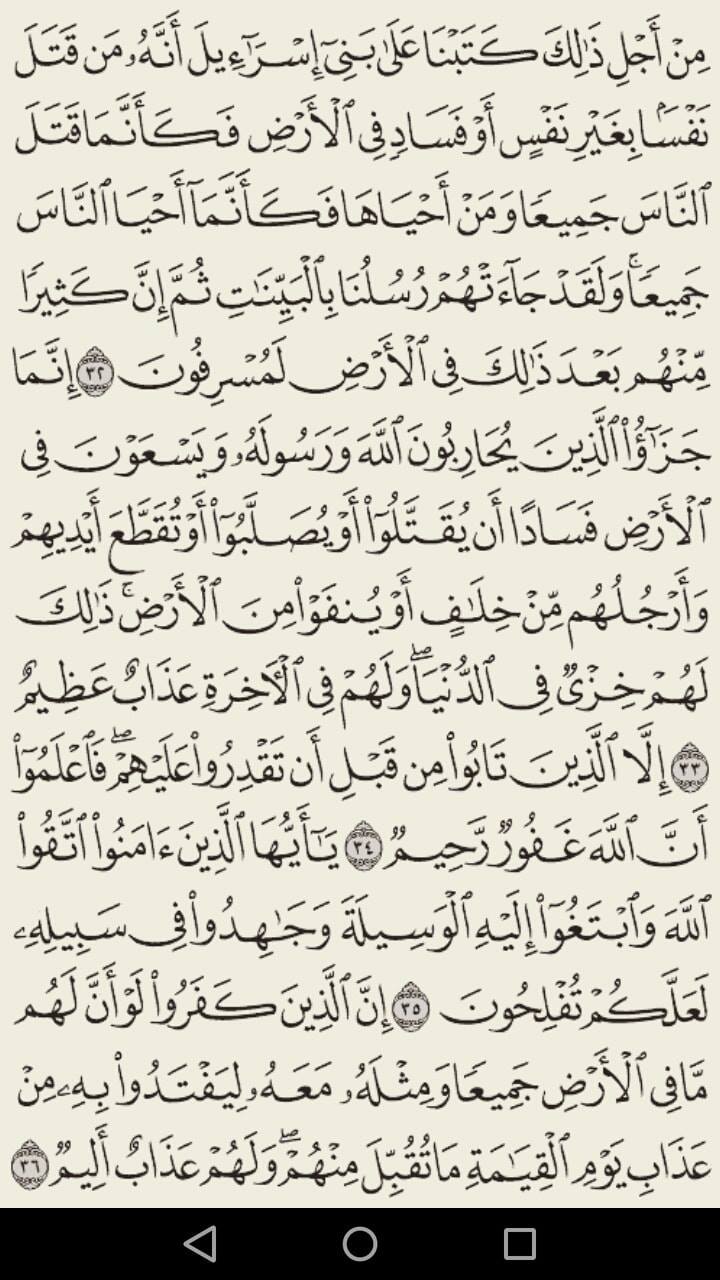 مِنْ أَجْلِ ذَٰلِكَ كَتَبْنَا عَلَىٰ بَنِىٓ إِسْرَٰٓءِيلَ أَنَّهُۥ مَن قَتَلَ
نَفْسَۢا بِغَيْرِ نَفْسٍ أَوْ فَسَادٍ فِى ٱلْأَرْضِ فَكَأَنَّمَا قَتَلَ
ٱلنَّاسَ جَمِيعًا وَمَنْ أَحْيَاهَا فَكَأَنَّمَآ أَحْيَا ٱلنَّاسَ
جَمِيعًا ۚ وَلَقَدْ جَآءَتْهُمْ رُسُلُنَا بِٱلْبَيِّنَٰتِ ثُمَّ إِنَّ كَثِيرًا
مِّنْهُم بَعْدَ ذَٰلِكَ فِى ٱلْأَرْضِ لَمُسْرِفُونَ ٣٢ إِنَّمَا
جَزَٰٓؤُا۟ ٱلَّذِينَ يُحَارِبُونَ ٱللَّهَ وَرَسُولَهُۥ وَيَسْعَوْنَ فِى
ٱلْأَرْضِ فَسَادًا أَن يُقَتَّلُوٓا۟ أَوْ يُصَلَّبُوٓا۟ أَوْ تُقَطَّعَ أَيْدِيهِمْ
وَأَرْجُلُهُم مِّنْ خِلَٰفٍ أَوْ يُنفَوْا۟ مِنَ ٱلْأَرْضِ ۚ ذَٰلِكَ
لَهُمْ خِزْىٌ فِى ٱلدُّنْيَا ۖ وَلَهُمْ فِى ٱلْءَاخِرَةِ عَذَابٌ عَظِيمٌ
٣٣ إِلَّا ٱلَّذِينَ تَابُوا۟ مِن قَبْلِ أَن تَقْدِرُوا۟ عَلَيْهِمْ ۖ فَٱعْلَمُوٓا۟
أَنَّ ٱللَّهَ غَفُورٌ رَّحِيمٌ ٣٤ يَٰٓأَيُّهَا ٱلَّذِينَ ءَامَنُوا۟ ٱتَّقُوا۟
ٱللَّهَ وَٱبْتَغُوٓا۟ إِلَيْهِ ٱلْوَسِيلَةَ وَجَٰهِدُوا۟ فِى سَبِيلِهِۦ
لَعَلَّكُمْ تُفْلِحُونَ ٣٥ إِنَّ ٱلَّذِينَ كَفَرُوا۟ لَوْ أَنَّ لَهُم
مَّا فِى ٱلْأَرْضِ جَمِيعًا وَمِثْلَهُۥ مَعَهُۥ لِيَفْتَدُوا۟ بِهِۦ مِنْ
عَذَابِ يَوْمِ ٱلْقِيَٰمَةِ مَا تُقُبِّلَ مِنْهُمْ ۖ وَلَهُمْ عَذَابٌ أَلِيمٌ ٣٦